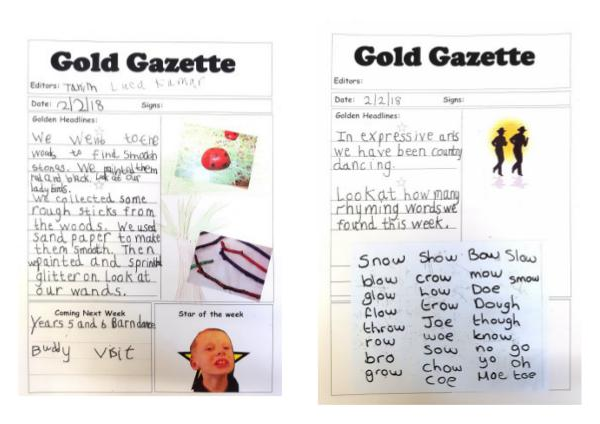 Gold Gazette
Editors: Tanim Luca Kumar
Date: 2/2/18 Signs:
Golden Headlines:
We went to the
woods to find smooth
stones. We painted them
red and black. Look at our
ladybirds.
We collected some
rough sticks from
the woods. We used
sand paper to make
them smooth. Then
we painted and sprinkled
glitter on Look at
our wands.
Coming Next Week
Years 5 and 6 Barn dance
Buddy Visit
Star of the week
Gold Gazette
Editors:
Date: 2/2/18 Signs:
Golden Headlines:
In expressive arts
we have been country
dancing.
Look at how many
rhyming words we
found this week.
Snow Show Bow Slow
blow crow mow smow
glow How Doe
flow trow Dough
throw Joe though
row woe know
bro sow no go
grow chow yo oh
coe Moe toe